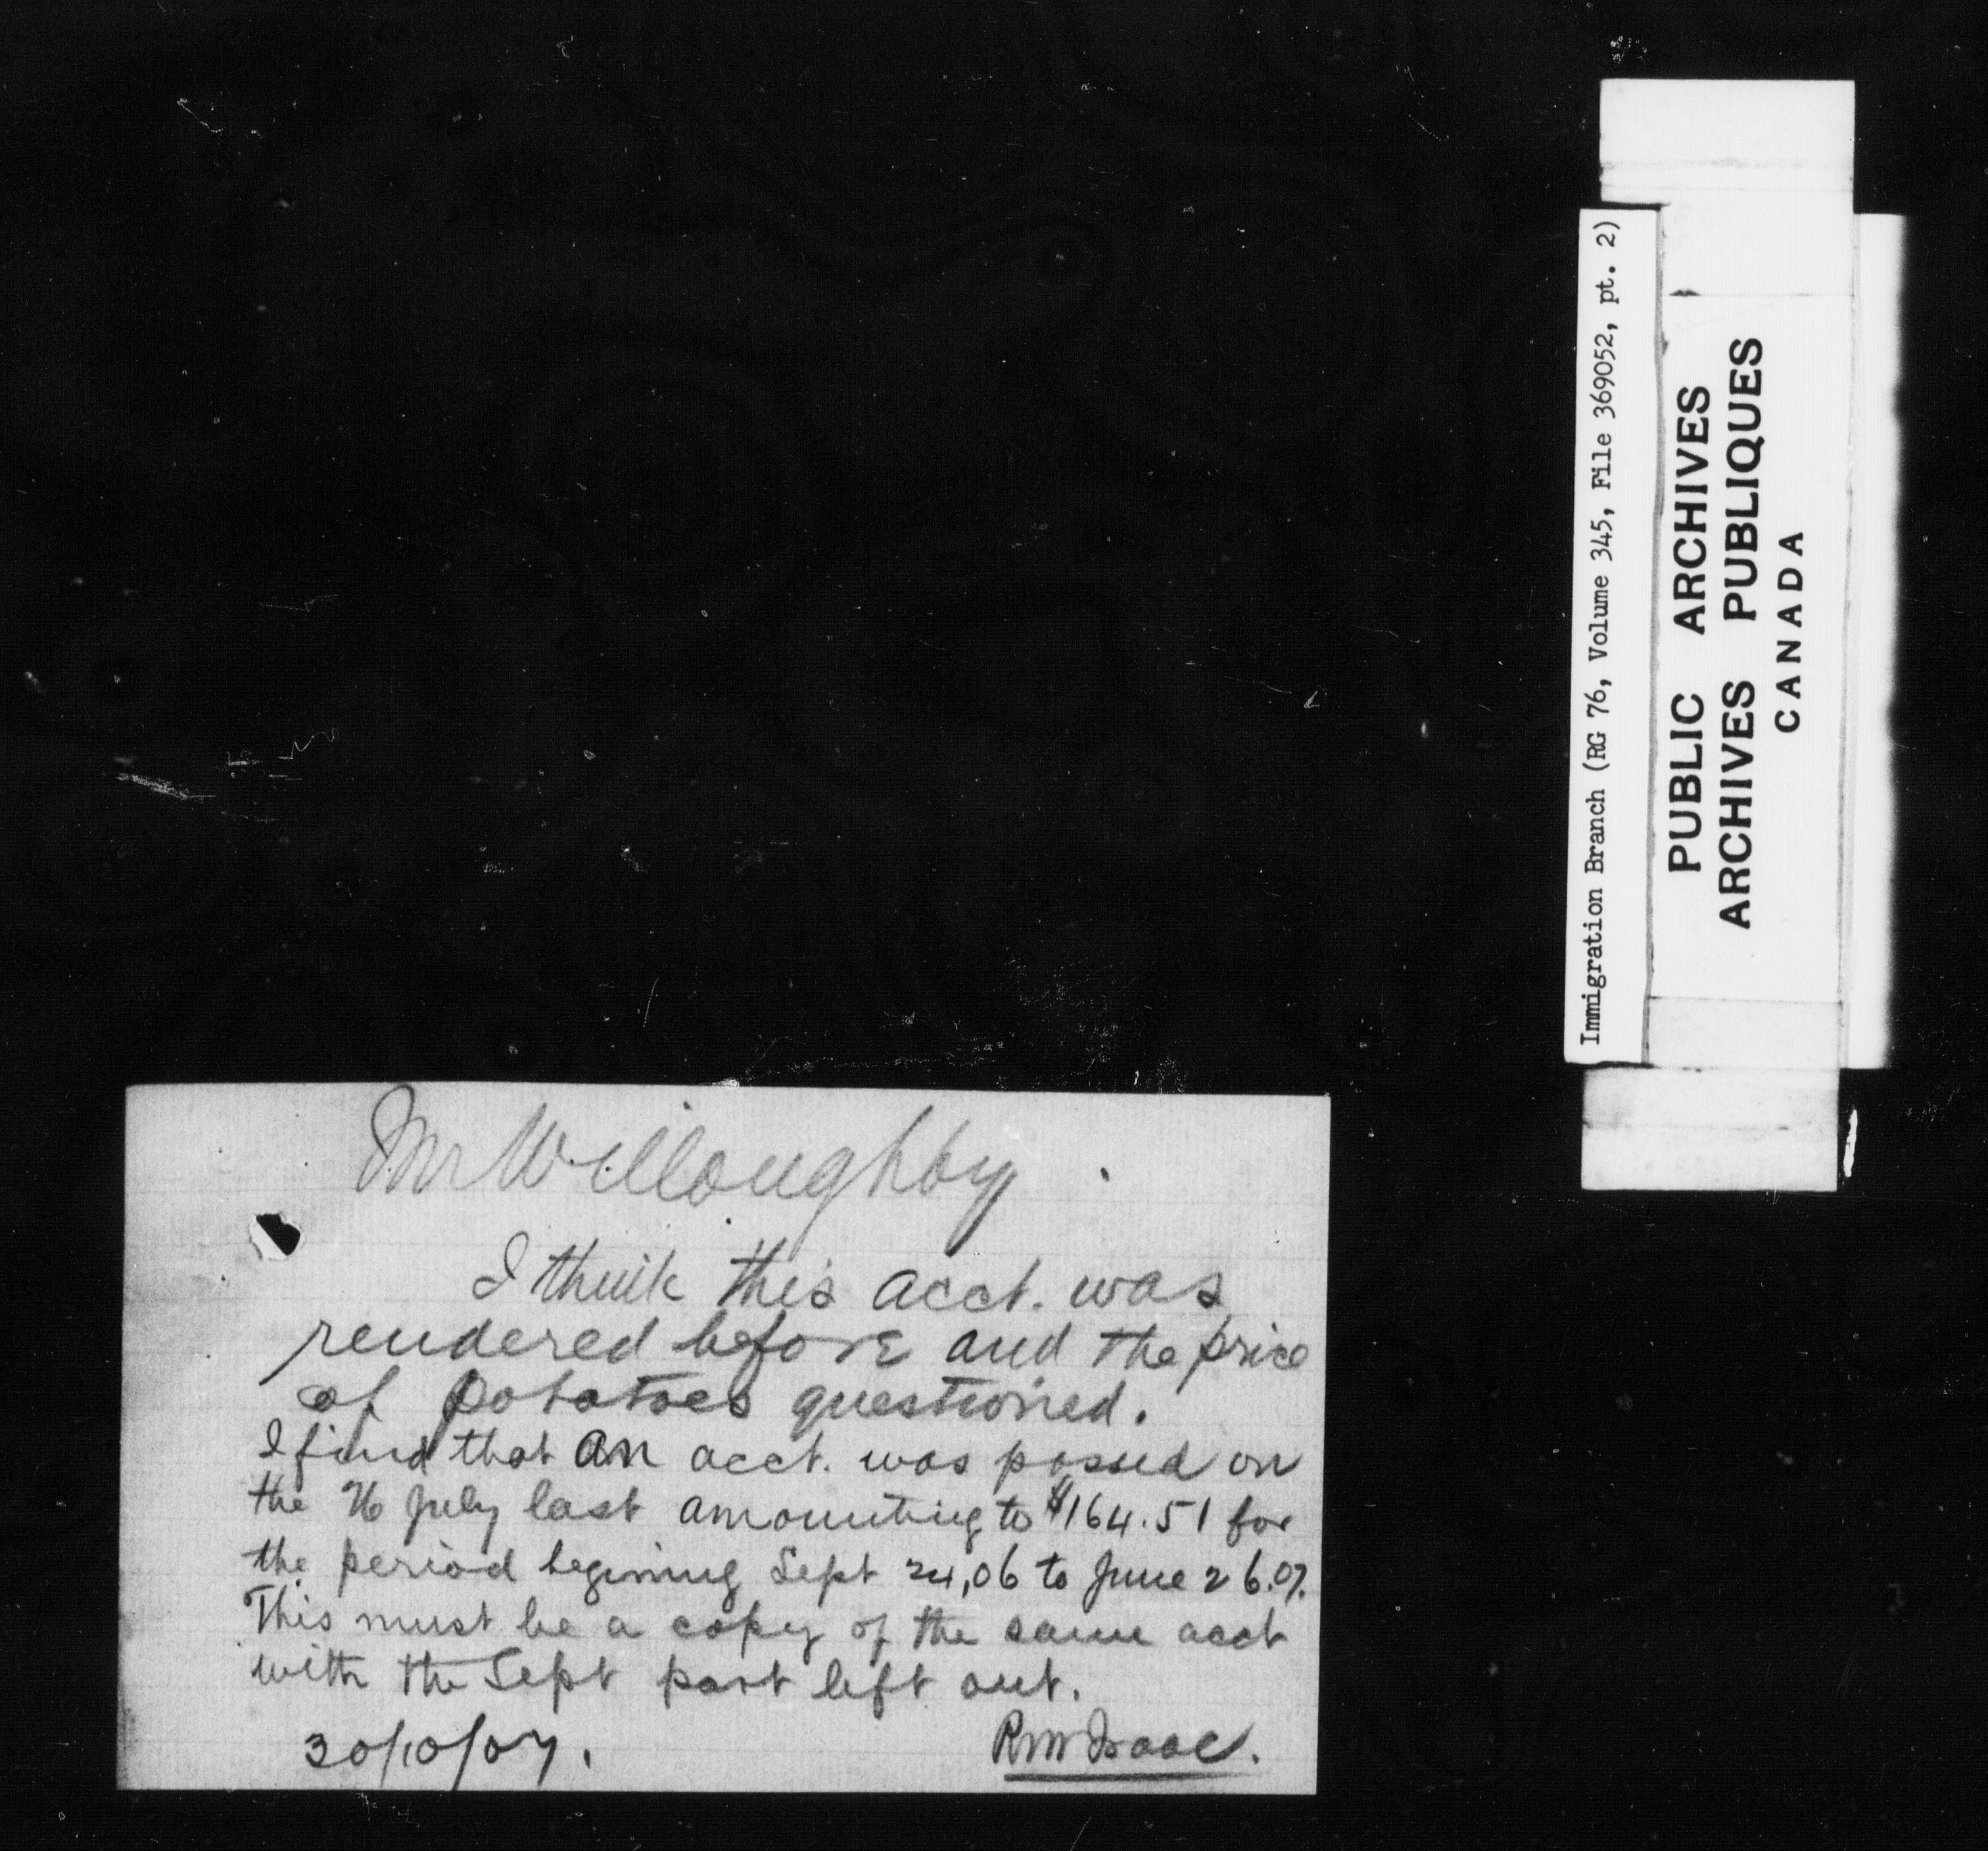 Mr Willoughby
I think this acct. was
rendered before and the price
of potatoes questioned.
I find that an acct. was passed on
the 26 July last amounting to $164.51 for
the period begining Sept 24,06 to June 26.07.
This must be a copy of the same acct
with the Sept part left out.
30/10/07.
RM Isaac.
Immigration Branch (RG 76, Volume 345, File 369052, pt. 2)
PUBLIC ARCHIVES
ARCHIVES PUBLIQUES
CANADA